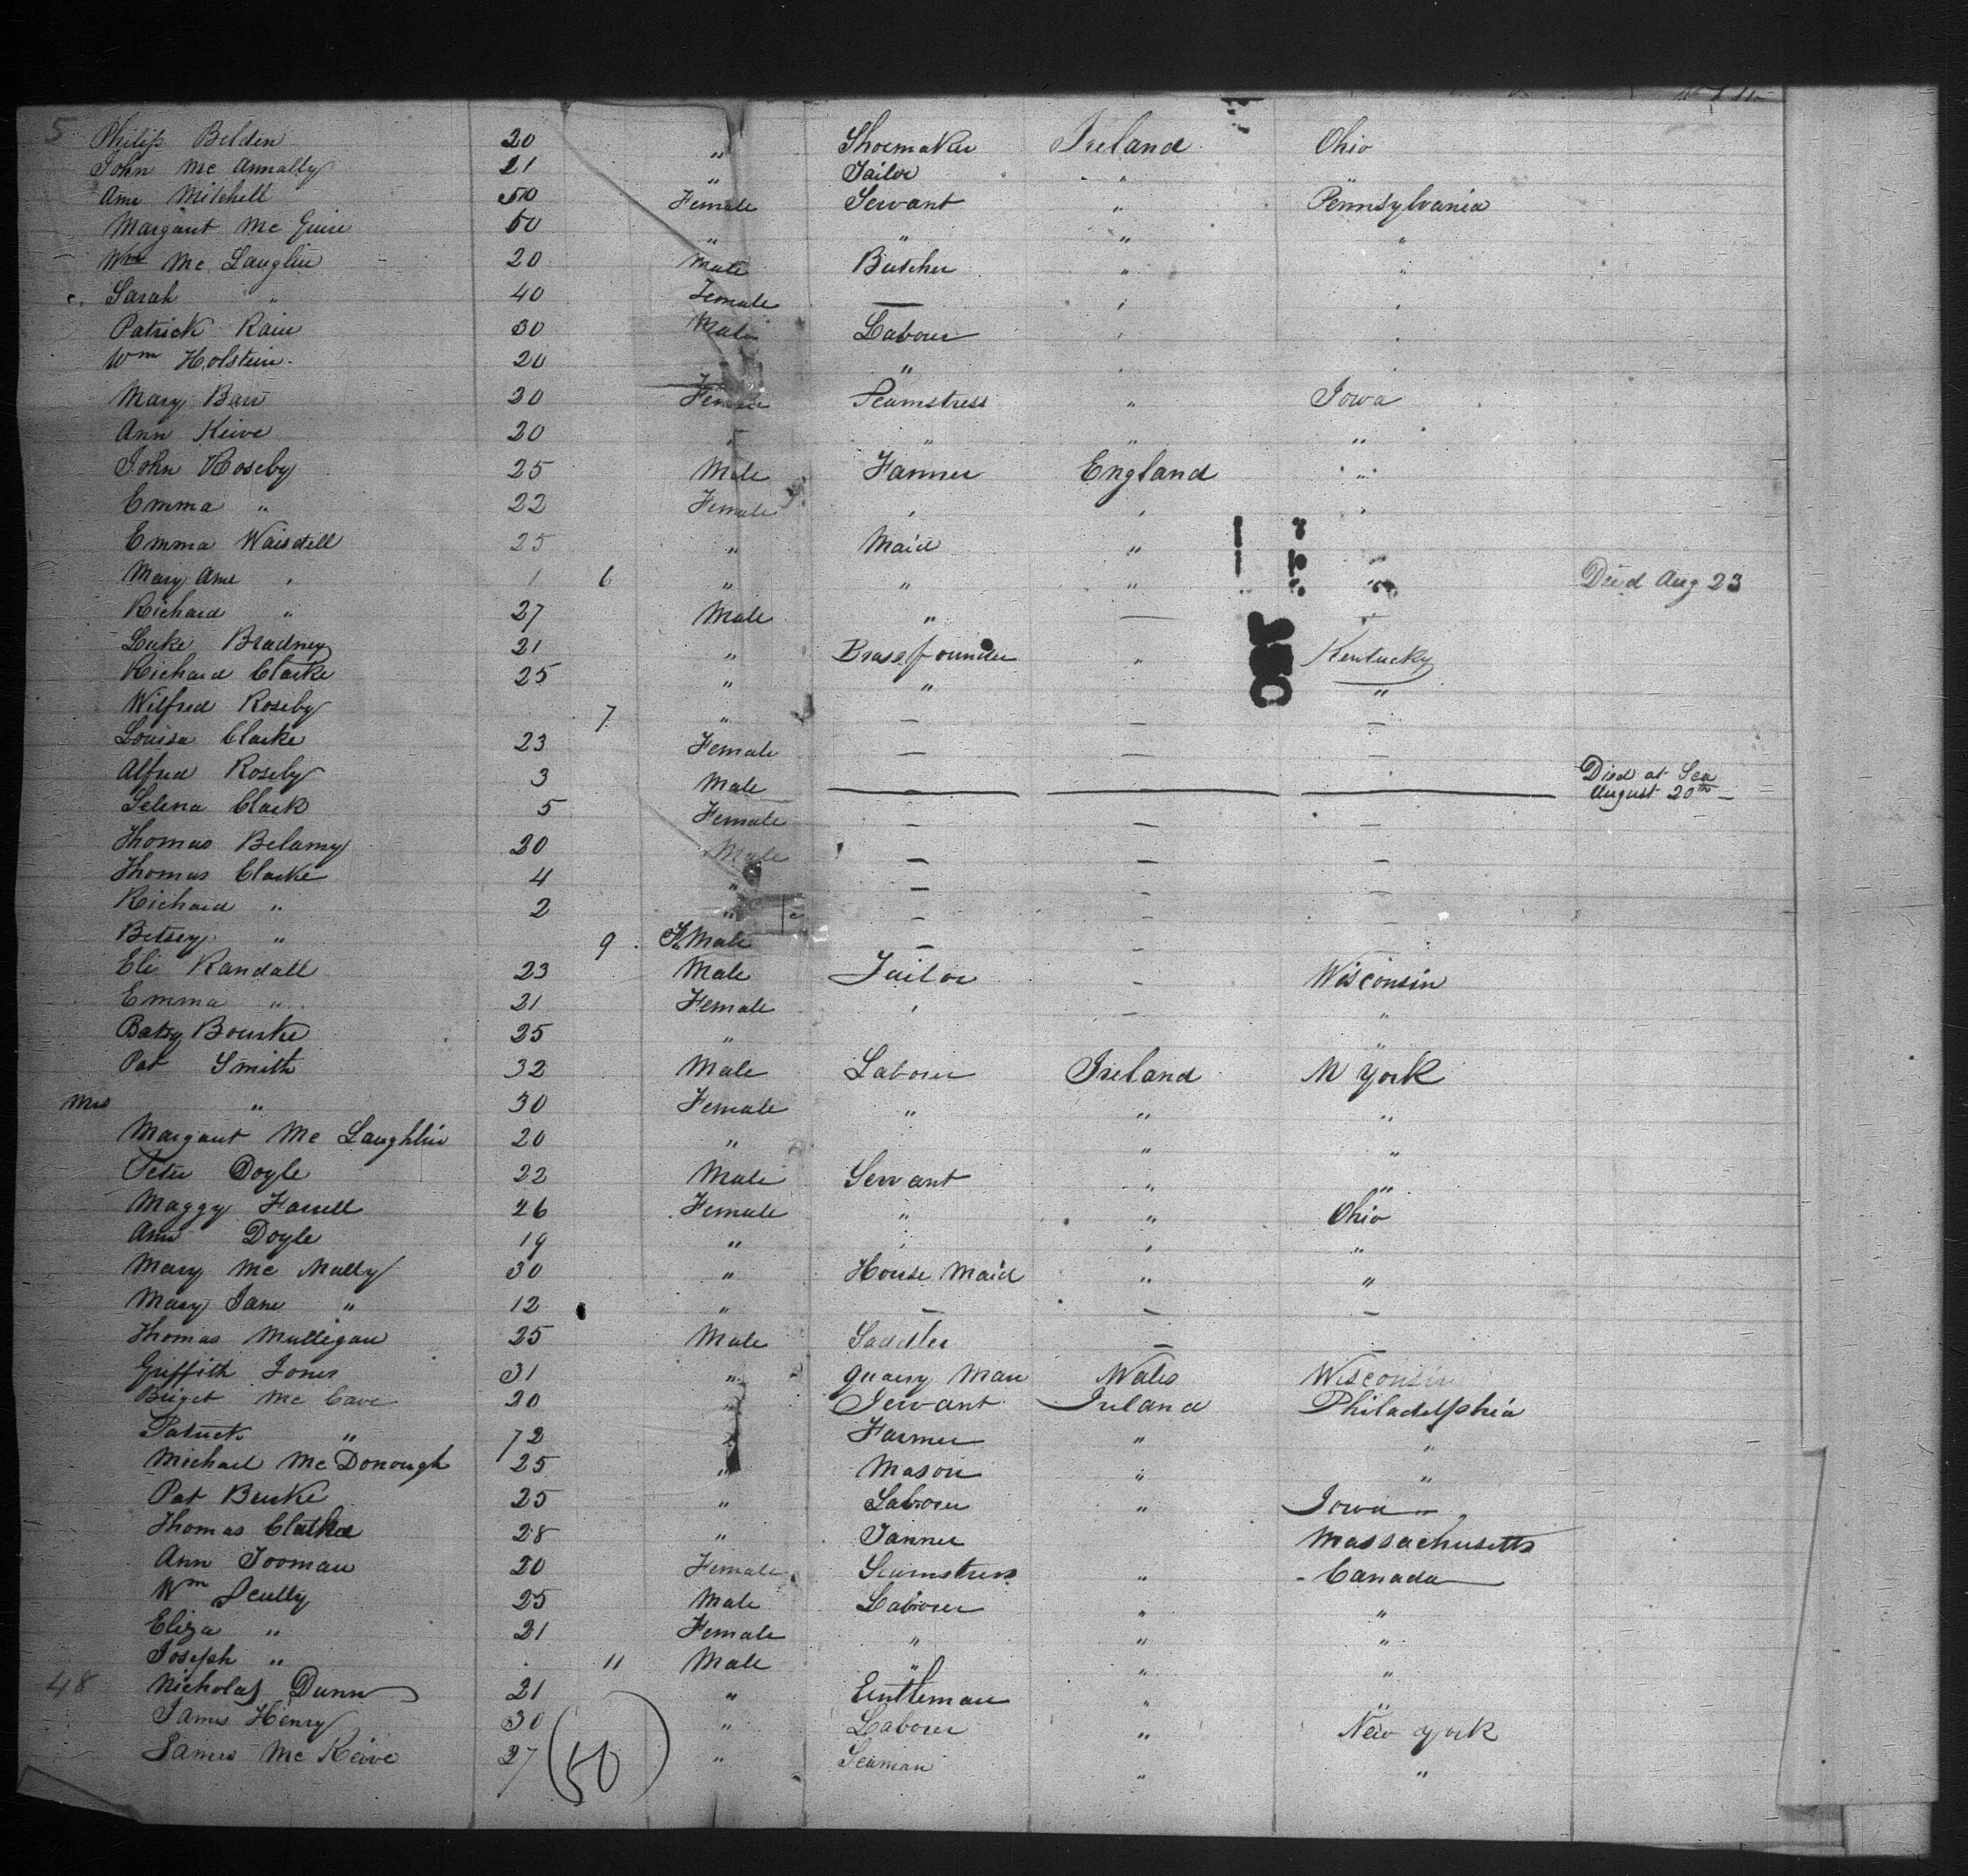 5 Philip Belden 20 " Shoemaker Ireland Ohio
John Mc Annally 21 " Tailor "
Ann Mitchell 50 Female Servant " Pennsylvania
Margaret Mc Guire 50 " " " "
Wm Mc Lauglin 20 Male Butcher " "
c. Sarah " 40 Female — " "
Patrick Kain 30 Male Labourer " "
Wm Holstein 20 " " "
Mary Barr 30 Female Seamstress " Iowa
Ann Keive 20 " " " "
John Roseby 25 Male Farmer England "
Emma " 22 Female " " "
Emma Waisdell 25 " Maid "
Mary Ann " 1 6 " " " " Died Aug 23
Richard " 27 Male " — —
Luke Bradney 21 " Brassfounder " Kentucky
Richard Clarke 25 " " "
Wilfred Roseby 7 " — — —
Louisa Clarke 23 Female — — —
Alfred Roseby 3 Male — — — Died at Sea
August 20th —
Selena Clark 5 Female — — —
Thomas Belamy 20 Male — — —
Thomas Clarke 4 " — — —
Richard " 2 " — — —
Betsey " 9 Fe Male — —
Eli Randall 23 Male Tailor — Wisconsin
Emma " 21 Female " — "
Batsy Bourke 25 " "
Pat Smith 32 Male Laborer Ireland N York
Mrs " 30 Female " " "
Margaret Mc Laughlin 20 " " "
Peter Doyle 22 Male Servant " "
Maggy Farrell 26 Female " " Ohio
Ann Doyle 19 " " " "
Mary Mc Nally 30 " House Maid " "
Mary Jane " 12 " — — —
Thomas Mulligan 25 Male Saddler — —
Griffith Jones 31 " Quarry Man Wales Wisconsin
Briget Mc Cave 20 " Servant Ireland Philadelphia
Patrick " 72 " Farmer " "
Michael Mc Donough 25 " Mason " "
Pat Burke 25 " Laborer " Iowa
Thomas 28 " Tanner Massachusetts
Ann Tooman 20 Female Seamstress " - Canada
Wm Scully 25 Male Laborer " "
Eliza " 21 Female " " "
Joseph " 11 Male " " "
48 Nicholas Dunn 21 " Gentleman " "
James Henry 30 " Laborer " New York
James Mc Keive 27 (50) " Seaman " "